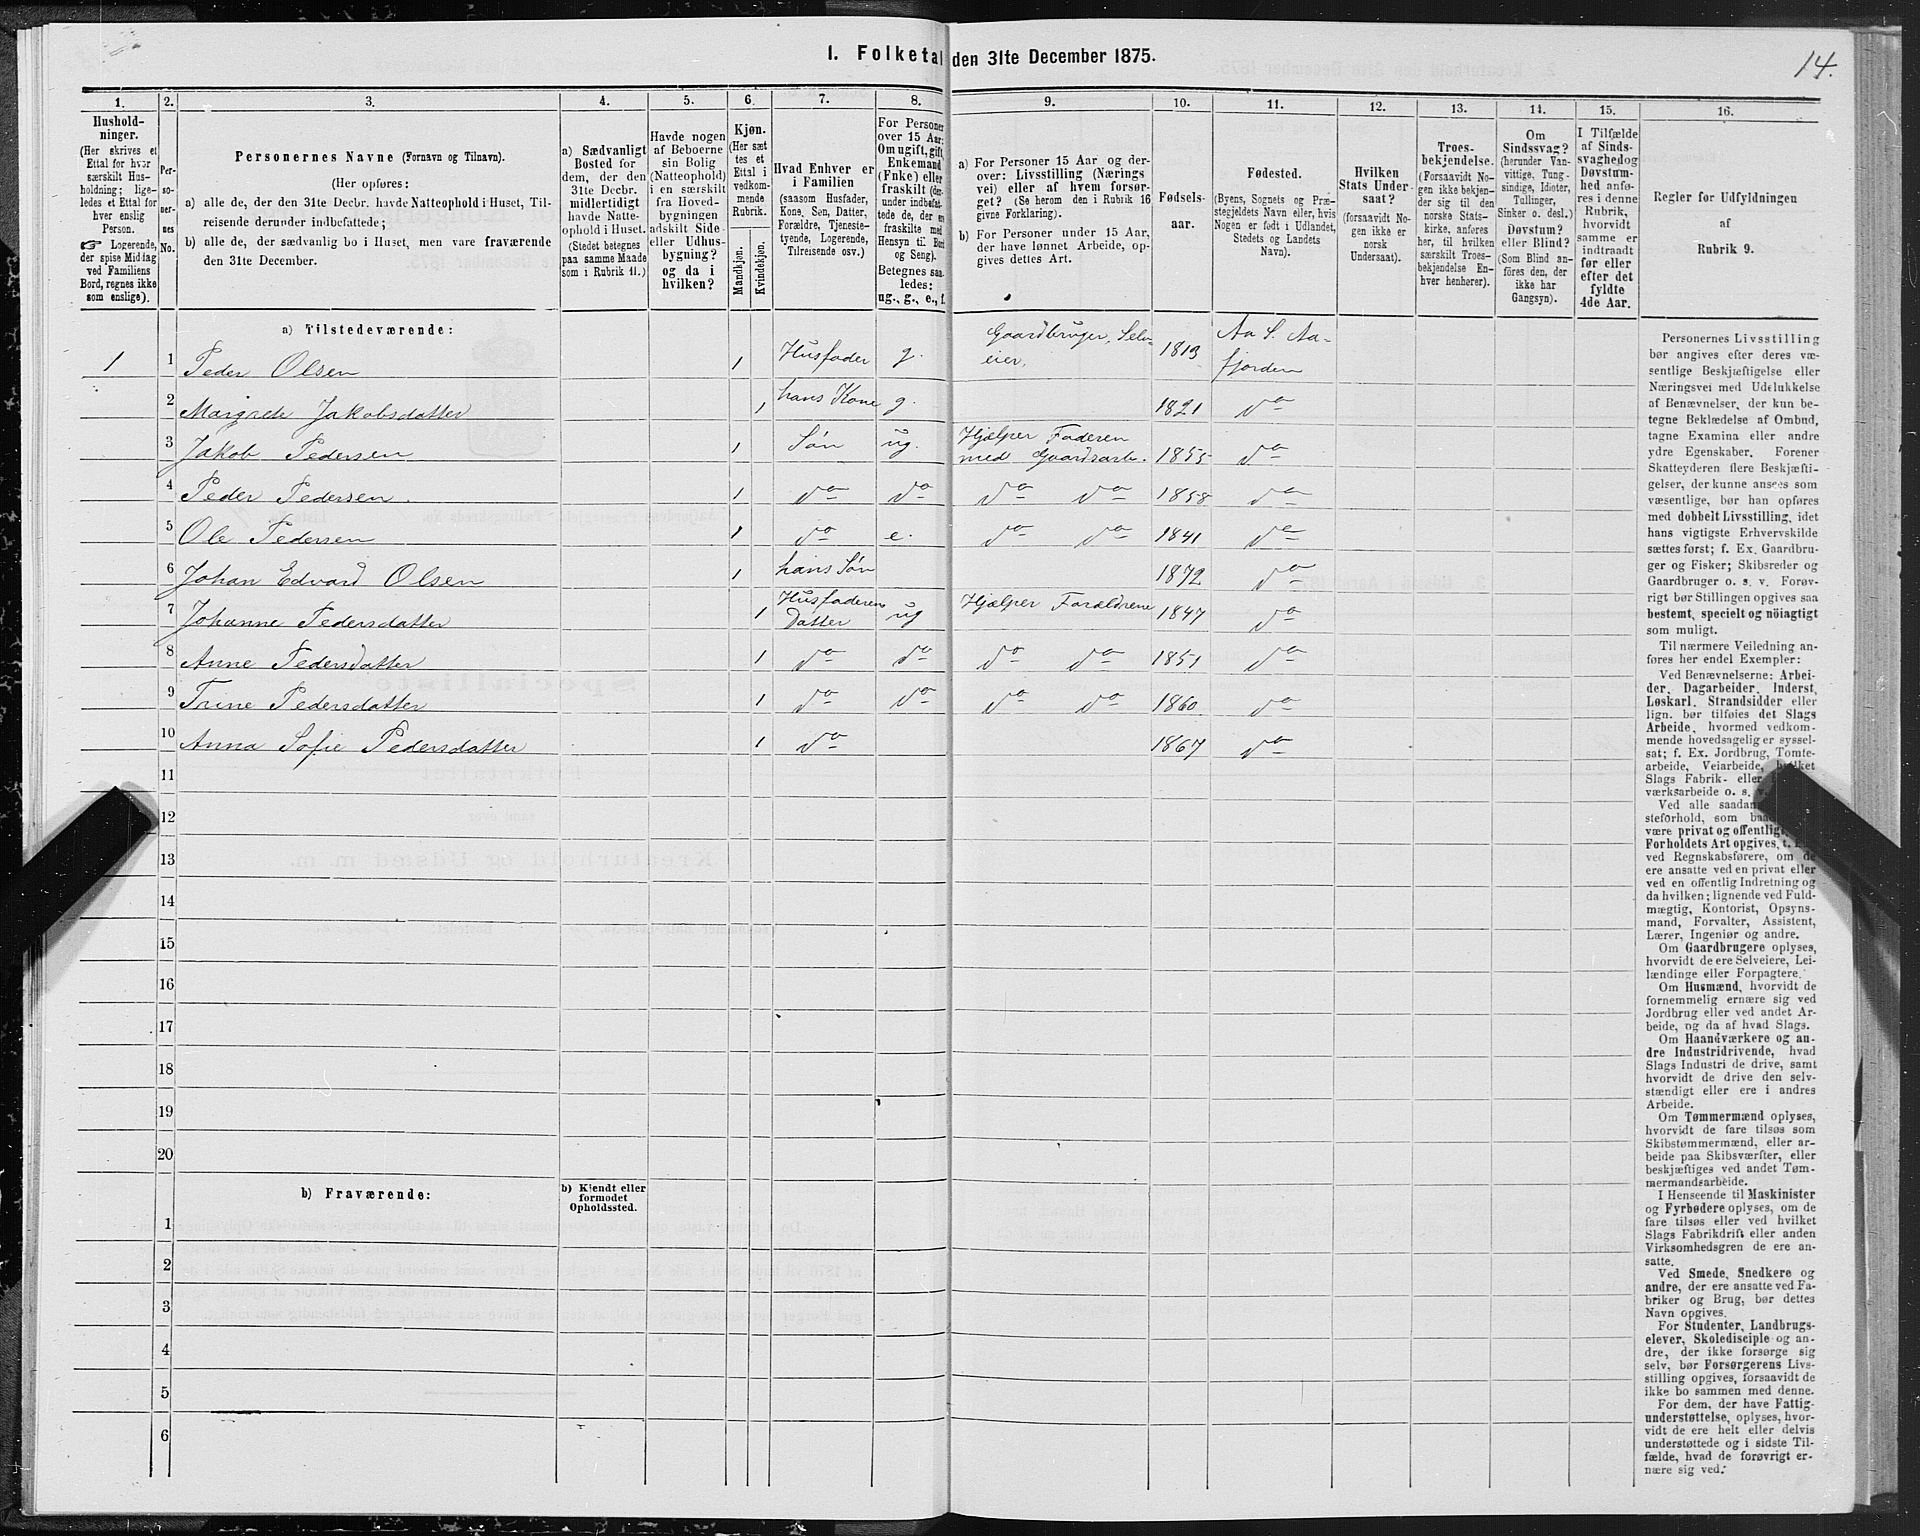 I. Folketal den 31te December 1875.
14.
1.
2.
3.
4.
5.
6.
7.
8.
9.
10.
11.
12.
13.
14.
15.
16.
Hushold-
ninger.
(Her skrives et
Ettal for hver
særskilt Hus-
holdning; lige-
ledes et Ettal for
hver enslig
Person.
☞ Logerende,
der spise Middag
ved Familiens
Bord, regnes ikke
som enslige).
Per-
so-
ner-
nes
No.
Personernes Navne (Fornavn og Tilnavn).
(Her opføres:
a) alle de, der den 31te Decbr. havde Natteophold i Huset, Til-
reisende derunder indbefattede;
b) alle de, der sædvanlig bo i Huset, men vare fraværende
den 31te December.
a) Sædvanligt
Bosted for
dem, der den
31te Decbr.
midlertidigt
havde Natte-
ophold i Huset.
(Stedet betegnes
paa samme Maade
som i Rubrik 11.)
Havde nogen
af Beboerne
sin Bolig
(Natteophold)
i en særskilt
fra Hoved-
bygningen
adskilt Side-
eller Udhus-
bygning?
og da i
hvilken?
Kjøn.
(Her sæt
tes et
Ettal i
vedkom-
mende
Rubrik.
Mandkjøn.
Kvindekjøn.
Hvad Enhver er
i Familien
(saasom Husfader,
Kone, Søn, Datter,
Forældre, Tjeneste-
tyende, Logerende,
Tilreisende osv.)
For Personer
over 15 Aar:
Om ugift, gift,
Enkemand
(Enke) eller
fraskilt (der-
under indbefat-
tede de, der er
fraskilte med
Hensyn til Bord
og Seng).
Betegnes saa-
ledes:
ug., g., e., f.
a) For Personer 15 Aar og der-
over: Livsstilling (Nærings
vei) eller af hvem forsør-
get? (Se herom den i Rubrik 16
givne Forklaring).
b) For Personer under 15 Aar,
der have lønnet Arbeide, op-
gives dettes Art.
Fødsels-
aar.
Fødested.
(Byens, Sognets og Præ-
stegjeldets Navn eller, hvis
Nogen er født i Udlandet,
Stedets og Landets
Navn).
Hvilken
Stats Under-
saat?
(forsaavidt No-
gen ikke er
norsk
Undersaat).
Troes-
bekjendelse.
(Forsaavidt No-
gen ikke bekjen-
der sig til den
norske Stats-
kirke, anføres
her, til hvilken
særskilt Troes-
bekjendelse En-
hver henhører).
Om
Sindssvag?
(herunder Van-
vittige, Tung-
sindige, Idioter,
Tullinger,
Sinker o. desl.)
Døvstum?
eller Blind?
(Som Blind an-
føres den, der
ikke har
Gangsyn).
I Tilfælde
af Sinds-
svaghedog
Døvstum-
hed anfø-
res i denne
Rubrik,
hvorvidt
samme er
indtraadt
før eller
efter det
fyldte
4de Aar.
Regler for Udfyldningen
af
Rubrik 9.
a) Tilstedeværende:
1 1 Peder Olsen 1 Husfader g. Gaardbruger, Selv-
eier. 1813 Aa S. Aa-
fjorden
2 Margrete Jakobsdatter 1 hans Kone g. 1821 do
3 Jakob Pedersen 1 Søn ug. Hjælper Faderen
med Gaardsarb. 1855 do
4 Peder Pedersen. 1 do do do do 1858 do
5 Ole Pedersen 1 do e. do do 1841 do
6 Johan Edvard Olsen 1 hans Søn 1872 do
7 Johanne Pedersdatter 1 Husfaderens
Datter ug Hjælper Forældrene 1847 do
8 Anne Pedersdatter 1 do do do do 1851 do
9 Trine Pedersdatter 1 do do do do 1860 do
10 Anna Sofie Pedersdatter 1 do 1867 do
11
12
13
14
15
16
17
18
19
20
b) Fraværende:
b) Kjendt eller
formodet
Opholdssted.
1
2
3
4
5
6
Personernes Livsstilling
bør angives efter deres væ-
sentlige Beskjæftigelse eller
Næringsvei med Udelukkelse
af Benævnelser, der kun be-
tegne Beklædelse af Ombud,
tagne Examina eller andre
ydre Egenskaber. Forener
Skatteyderen flere Beskjæfti-
gelser, der kunne ansees som
væsentlige, bør han opføres
med dobbelt Livsstilling, idet
hans vigtigste Erhvervskilde
sættes først; f. Ex. Gaardbru-
ger og Fisker; Skibsreder og
Gaardbruger o. s. v. Forøv-
rigt bør Stillingen opgives saa
bestemt, specielt og nöiagtigt
som muligt.
Til nærmere Veiledning an-
føres her endel Exempler:
Ved Benævnelserne: Arbei-
der, Dagarbeider, Inderst,
Løskarl, Strandsidder eller
lign. bør tilføies det Slags
Arbeide, hvormed vedkom-
mende hovedsagelig er syssel-
sat; f. Ex. Jordbrug, Tomte-
arbeide, Veiarbeide, hvilket
Slags Fabrik- eller
værksarbeide o. s. v.
Ved alle saadan
steforhold, som
være privat og offentligt,
Forholdets Art opgives, t. Ex.
ved Regnskabsførere, om de
ere ansatte ved en privat eller
ved en offentlig Indretning og
da hvilken; lignende ved Fuld-
mægtig, Kontorist, Opsyns-
mand, Forvalter, Assistent,
Lærer, Ingeniør og andre.
Om Gaardbrugere oplyses,
hvorvidt de ere Selveiere, Lei-
lændinge eller Forpagtere.
Om Husmænd, hvorvidt de
fornemmelig ernære sig ved
Jordbrug eller ved andet Ar-
beide, og da af hvad Slags.
Om Haandværkere og an-
dre Industridrivende, hvad
Slags Industri de drive, samt
hvorvidt de drive den selv-
stændigt eller ere i andres
Arbeide.
Om Tømmermænd oplyses,
hvorvidt de fare tilsøs som
Skibstømmermænd, eller ar-
beide paa Skibsværfter, eller
beskjæftiges ved andet Tøm-
mermandsarbeide.
I Henseende til Maskinister
og Fyrbødere oplyses, om de
fare tilsøs eller ved hvilket
Slags Fabrikdrift eller anden
Virksomhedsgren de ere an-
satte.
Ved Smede, Snedkere og
andre, der ere ansatte ved Fa-
briker og Brug, bør dettes
Navn opgives.
For Studenter, Landbrugs-
elever, Skoledisciple og an-
dre, der ikke forsørge sig
selv, bør Forsørgerens Livs-
stilling opgives, forsaavidt de
ikke bo sammen med denne.
For dem, der have Fattig-
understøttelse, oplyses, hvor-
vidt de ere helt eller delvis
understøttede og i sidste Til-
fælde, hvad de forøvrigt er-
nære sig ved.